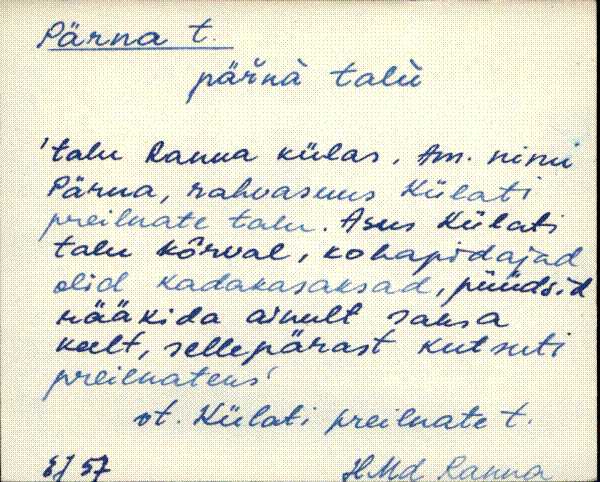 Pärna t.
pärnà talù
'talu Ranna külas. Am. nimi
Pärna, rahvasuus Külati
preilnate talu. Asus Külati
talu kõrval, kohapidajad
olid kadakasaksad, püüdsid
rääkida ainult saksa
keelt, sellepärast kutsuti
preilnateks'
vt. Külati preilnate t.
EJ 57 HMd Ranna